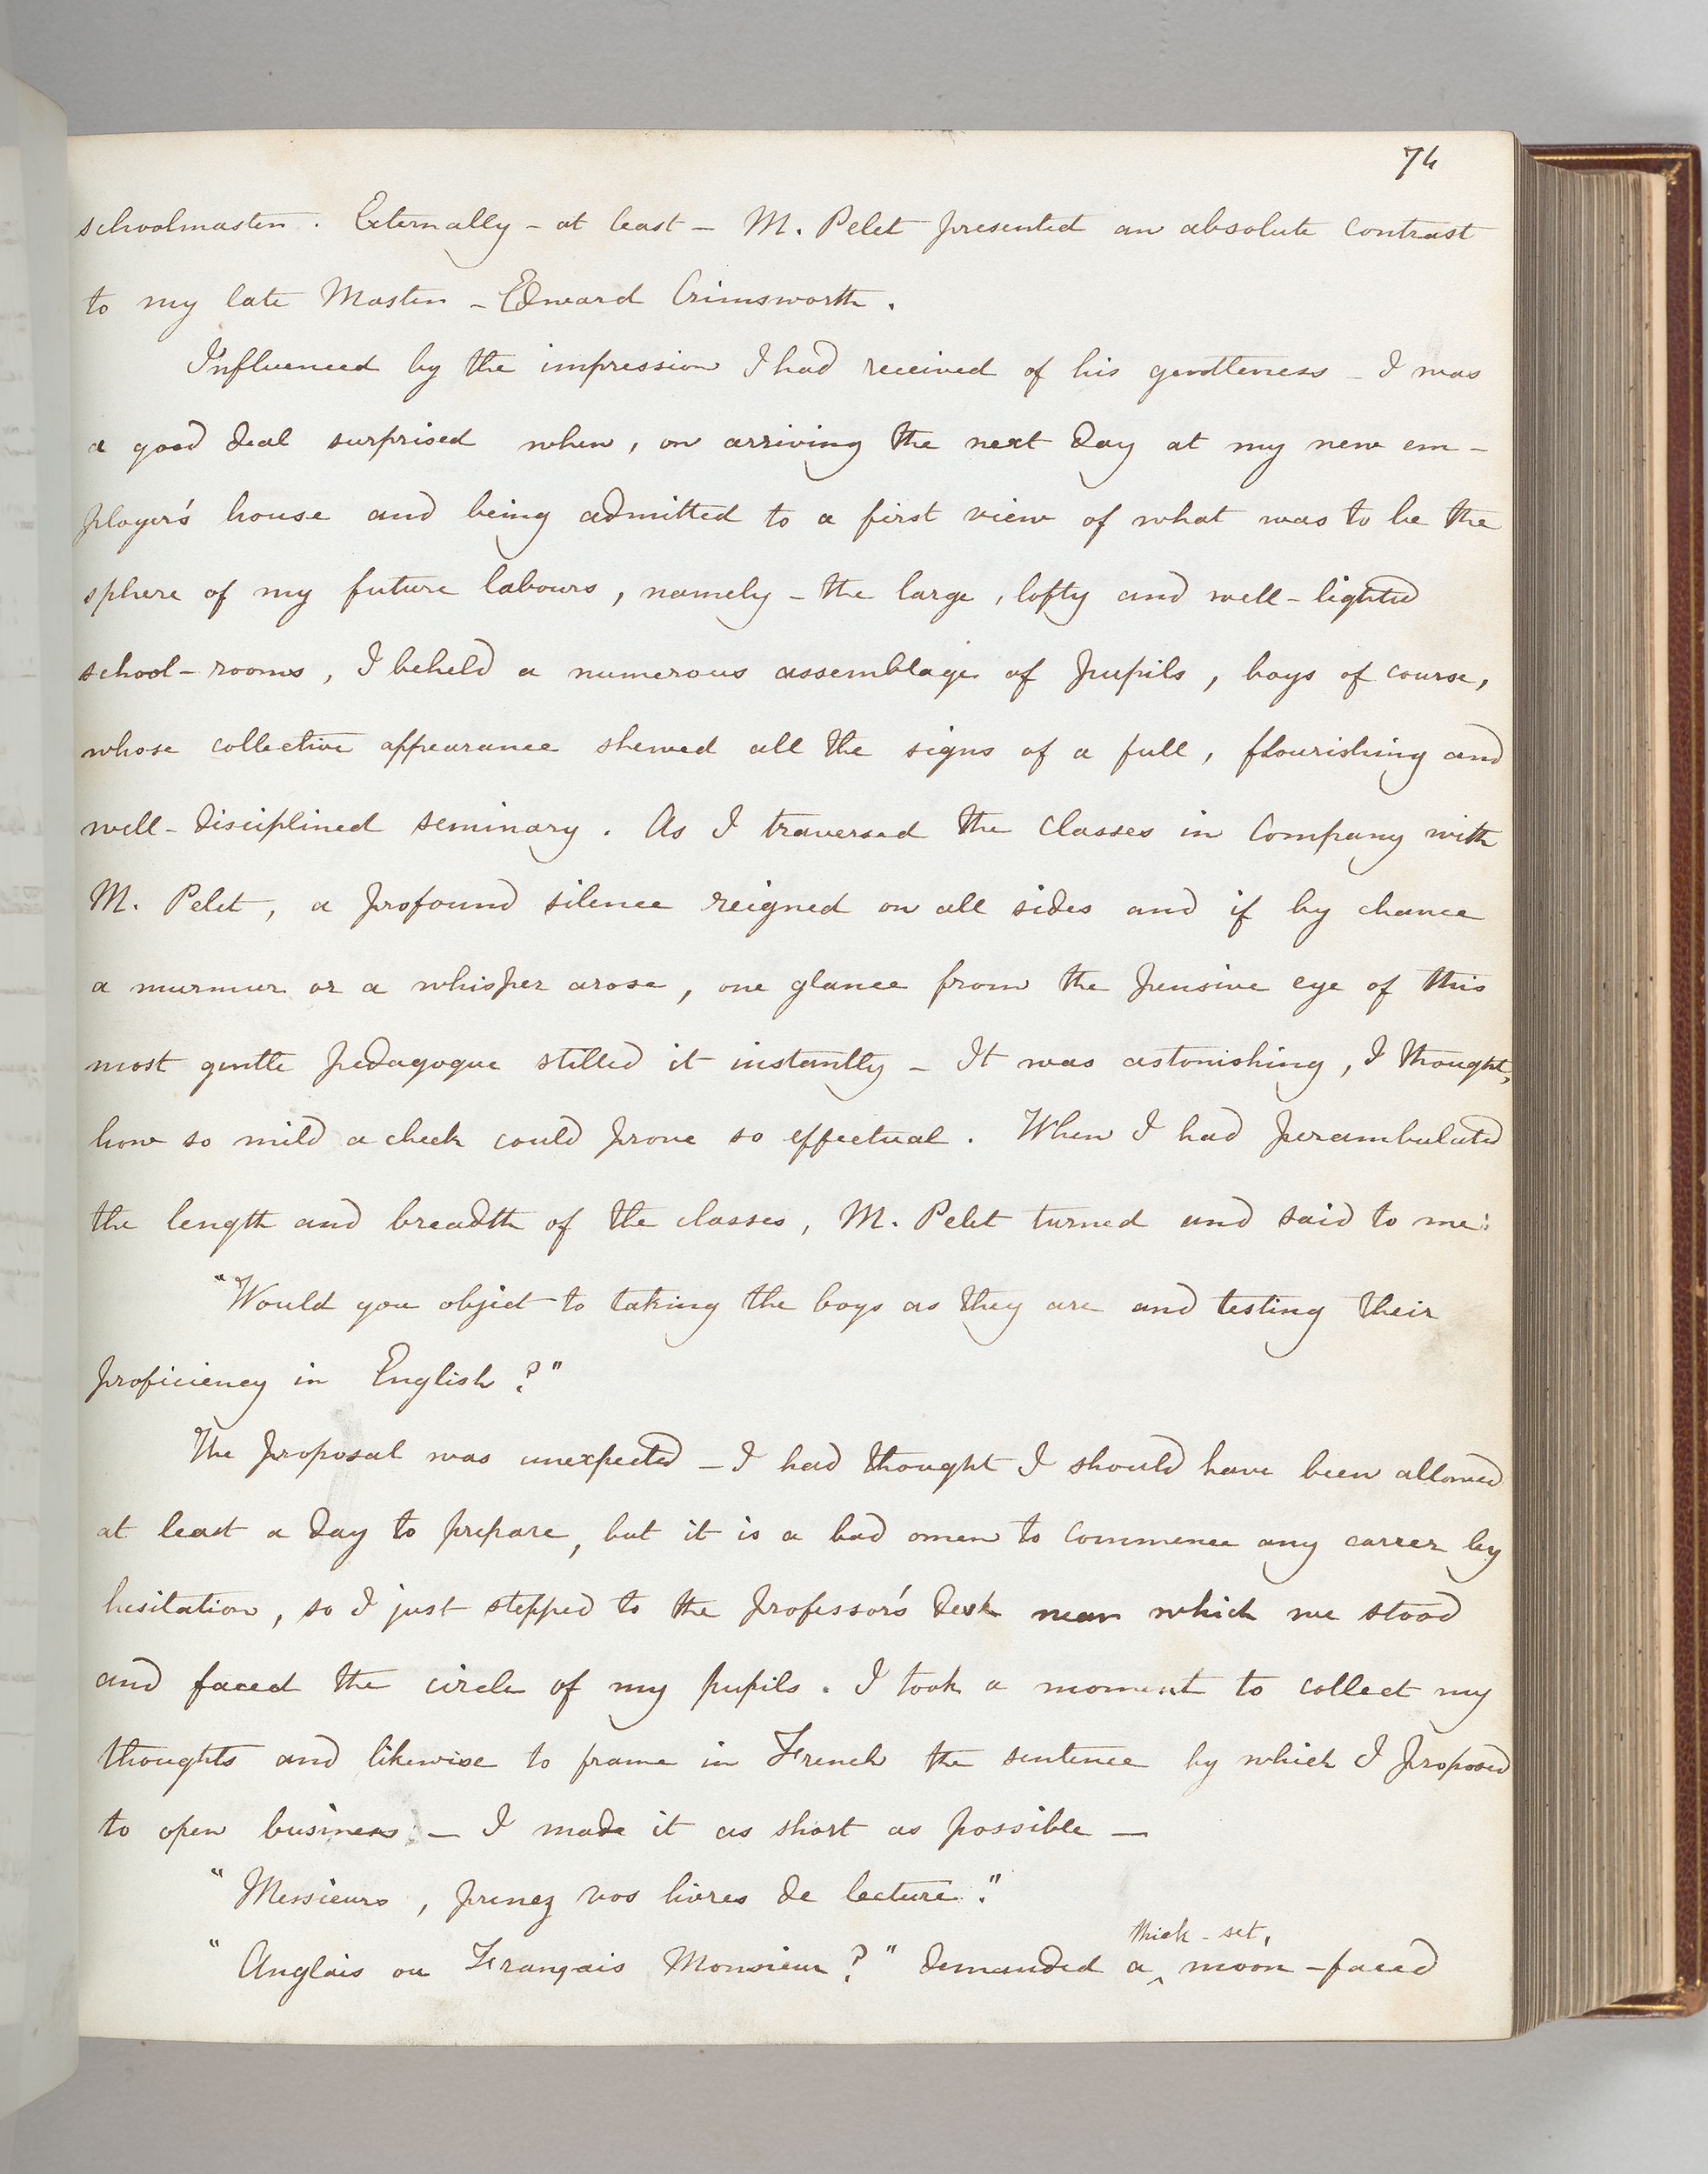 74
schoolmaster. Externally – at least – M. Pelet presented an absolute contrast
to my late Master – Edward Crimsworth.
Influenced by the impression I had received of his gentleness – I was
a good deal surprised when, on arriving the next day at my new em-
ployer's house and being admitted to a first view of what was to be the
sphere of my future labours, namely – the large, lofty and well-lighted
school-rooms, I beheld a numerous assemblage of pupils, boys of course,
whose collective appearance shewed all the signs of a full, flourishing and
well-disciplined seminary. As I traversed the classes in company with
M. Pelet, a profound silence reigned on all sides and if by chance
a murmur or a whisper arose, one glance from the pensive eye of this
most gentle pedagogue stilled it instantly – It was astonishing, I thought,
how so mild a check could prove so effectual. When I had perambulated
the length and breadth of the classes, M. Pelet turned and said to me:
"Would you object to taking the boys as they are and testing their
proficiency in English?"
The proposal was unexpected – I had thought I should have been allowed
at least a day to prepare, but it is a bad omen to commence any career by
hesitation, so I just stepped to the Professor's desk near which we stood
and faced the circle of my pupils. I took a moment to collect my
thoughts and likewise to frame in French the sentence by which I proposed
to open business – I made it as short as possible –
"Messieurs, prenez vos livres de lecture."
thick-set,
"Anglais ou Français Monsieur?" demanded a ^ moon-faced